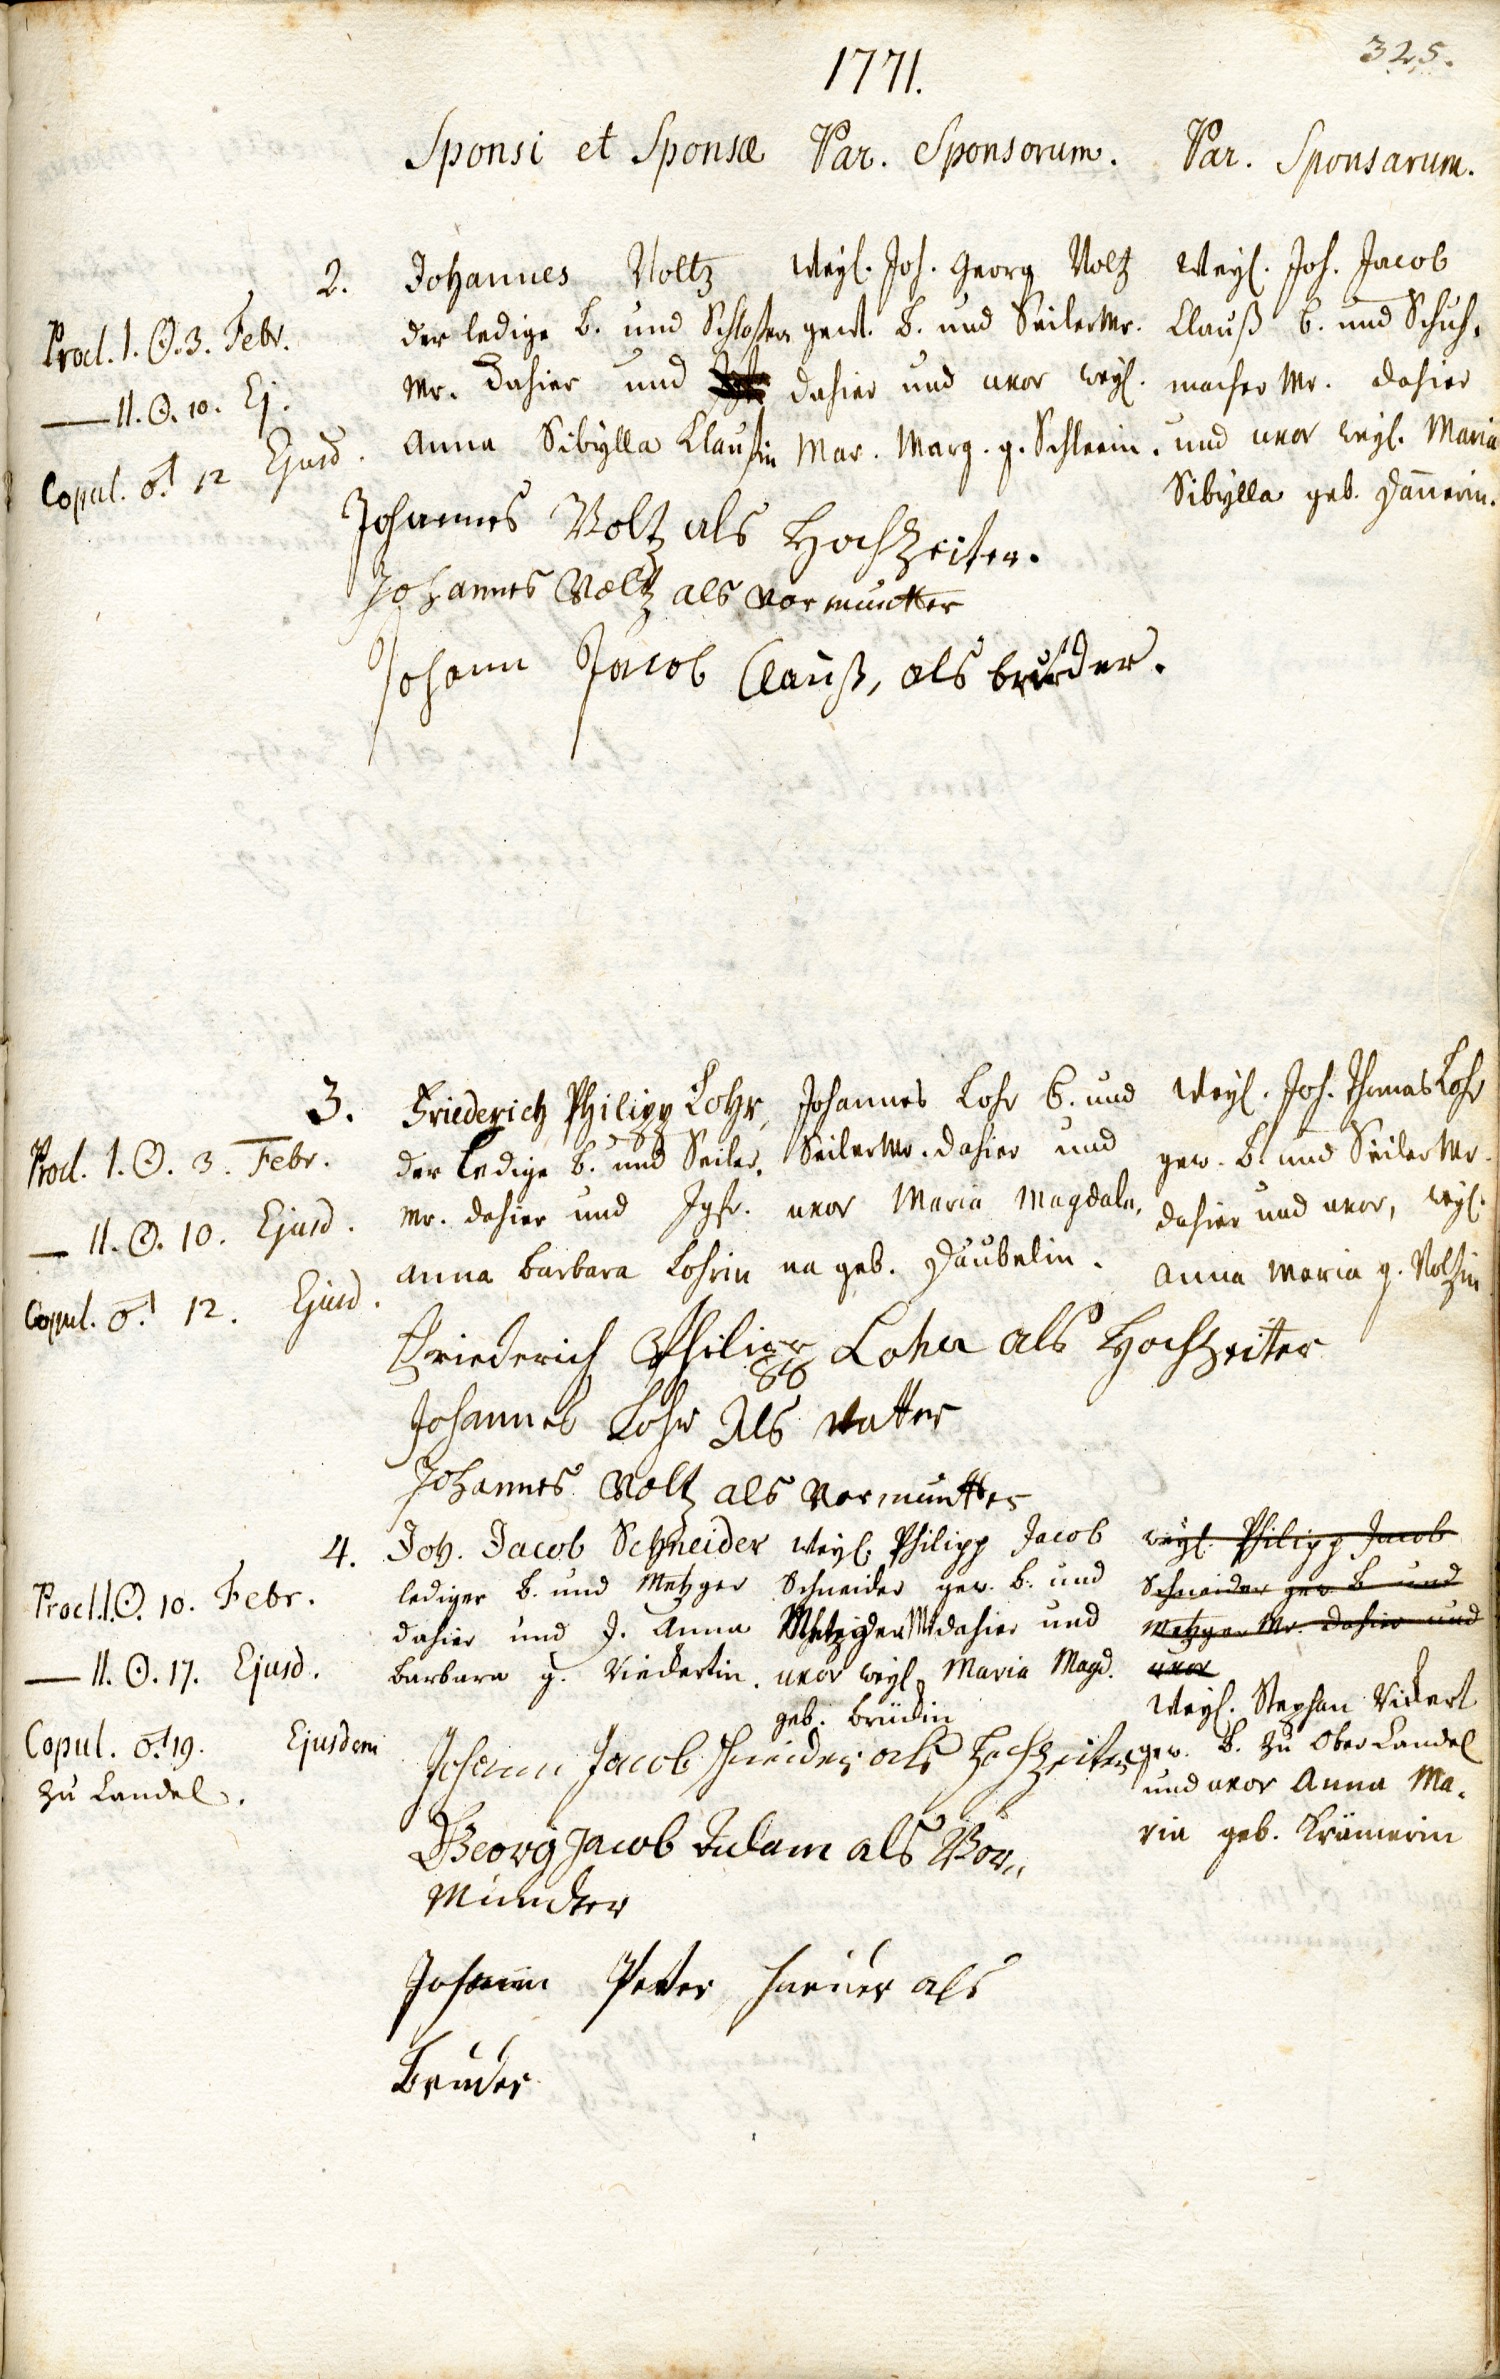 325.
1771.
Sponsi et Sponsæ Par. Sponsorum. Par. Sponsarum.
Procl. I. ☉. 3. Febr.
— II. ☉. 10. Ej.
Copul. ♂. 12 Ejusd.
2. Johannes Voltz
der ledige B. und Schlosser
Mr. dahier und
Anna Sibylla Claußin
Weyl. Joh. Georg Voltz
gewes. B. und Seiler Mr.
dahier und uxor weyl.
Mar. Marg. g. Schleein.
Weyl. Joh. Jacob
Clauß B. und Schuh-
macher Mr. dahier
und uxor weyl. Maria
Sibylla geb. Dannerin.
Johannes Voltz als Hochzeiter.
Johannes Voltz als vormuntter
Johann Jacob Clauß, als bruder.
Procl. I. ☉. 3. Febr.
— II. ☉. 10. Ejusd.
Copul. ♂. 12. Ejusd.
3. Friederich Philipp Lohr,
der ledige B. und Seiler-
Mr. dahier und Jgfr.
Anna Barbara Lohrin
Johannes Lohr B. und
Seiler Mr. dahier und
uxor Maria Magdale-
na geb. Däubelin.
Weyl. Joh. Thomas Lohr
gew. B. und Seiler Mr.
dahier und uxor, weyl.
Anna Maria g. Voltzin
Friederich Philipp Loher als Hochzeiter
Johannes Lohr Als vatter
Johannes Voltz als vormuntter
Procl. I. ☉. 10. Febr.
— II. ☉. 17. Ejusd.
Copul. ♂. 19. Ejusdem
zu Landel.
4. Joh. Jacob Schneider
lediger B. und Metzger
dahier und J. Anna
Barbara g. Vickertin.
Weyl. Philipp Jacob
Schneider gew. B. und
Metzger Mr dahier und
uxor weyl. Maria Magd.
geb. Brüdin
weyl. Philipp Jacob
Schneider gew. B. und
Metzger Mr. dahier und
uxor
Weyl. Stephan Vickert
gew. B. zu Ober Landel
und uxor Anna Ma-
ria geb. Krämerin
Johann Jacob schneider als Hochzeiter
Georg Jacob Adam als Vor-
Munder
Johann Peter als
Bruder